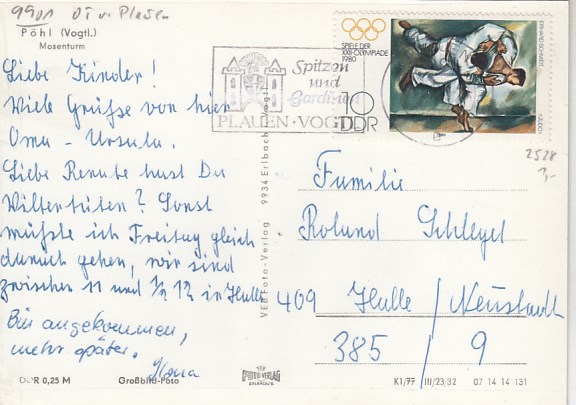 9901 OT v. Plauen
Pöhl (Vogtl.)
Mosenturm
Liebe Kinder!
Viele Grüße von hier
Oma - Ursula.
Liebe Renate hast Du
Wiltertüten? Sonst
müßte ich Freitag gleich
danach gehen, wir sind
zwischen 11 und 1/2 12 in Halle.
Bin angekommen,
mehr später.
Ilona
DDR 0,25 M Großbild-Foto
VEB Foto-Verlag 9934 Erlbach
SPIELE DER
XXII. OLYMPIADE
1980
10
DDR
ERHARD SCHMIDT
Spitzen
und
Gardinen
PLAUEN · VOGTL
2528
1,-
Familie
Roland Schlegel
409 Halle / Neustadt
385 / 9
FOTO VERLAG
ERLBACH
K1/77 III/23/32 07 14 14 131